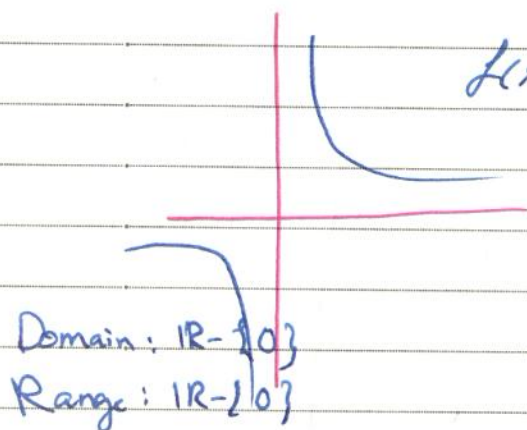 f(x
Domain : IR-{0}
Range : IR-{0}